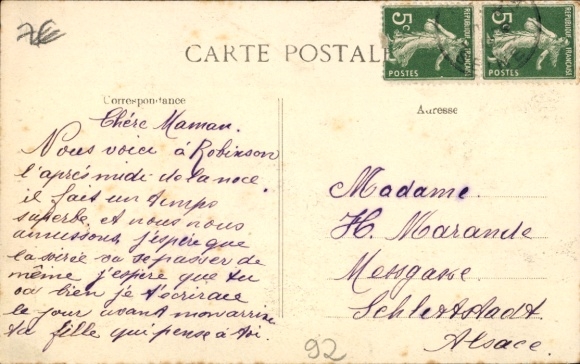 7€
CARTE POSTALE
5c REPUBLIQUE FRANÇAISE POSTES
5c REPUBLIQUE FRANÇAISE POSTES
Correspondance
Chére Maman.
Nous voici à Robinson
l'aprés midi de la noce.
il fait un temps
superbe et nous nous
amussons j'espére que
la soirée va se passer de
même j'espére que tu
va bien je t'écrirai
le jour avant mon
ta fille qui pense à toi.
Adresse
Madame
H. Marande
Messgasse
Schlettstadt
Alsace.
92